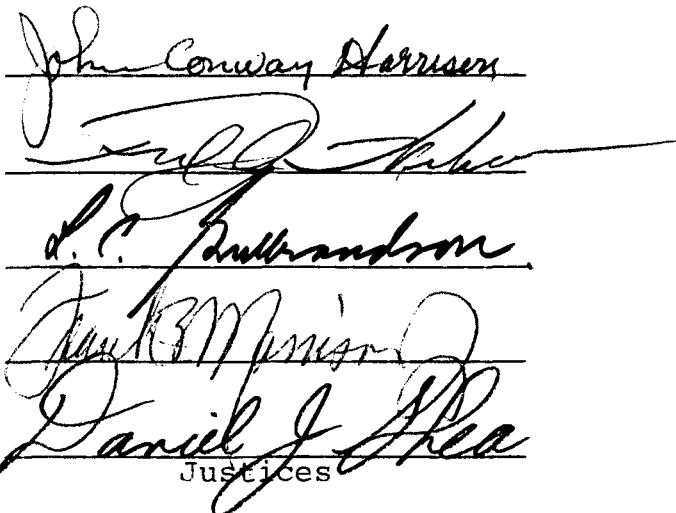 John Conway Harrison
Fred J. Weber
L. C. Gulbrandson
Frank B Morrison Jr
Daniel J Shea
Justices